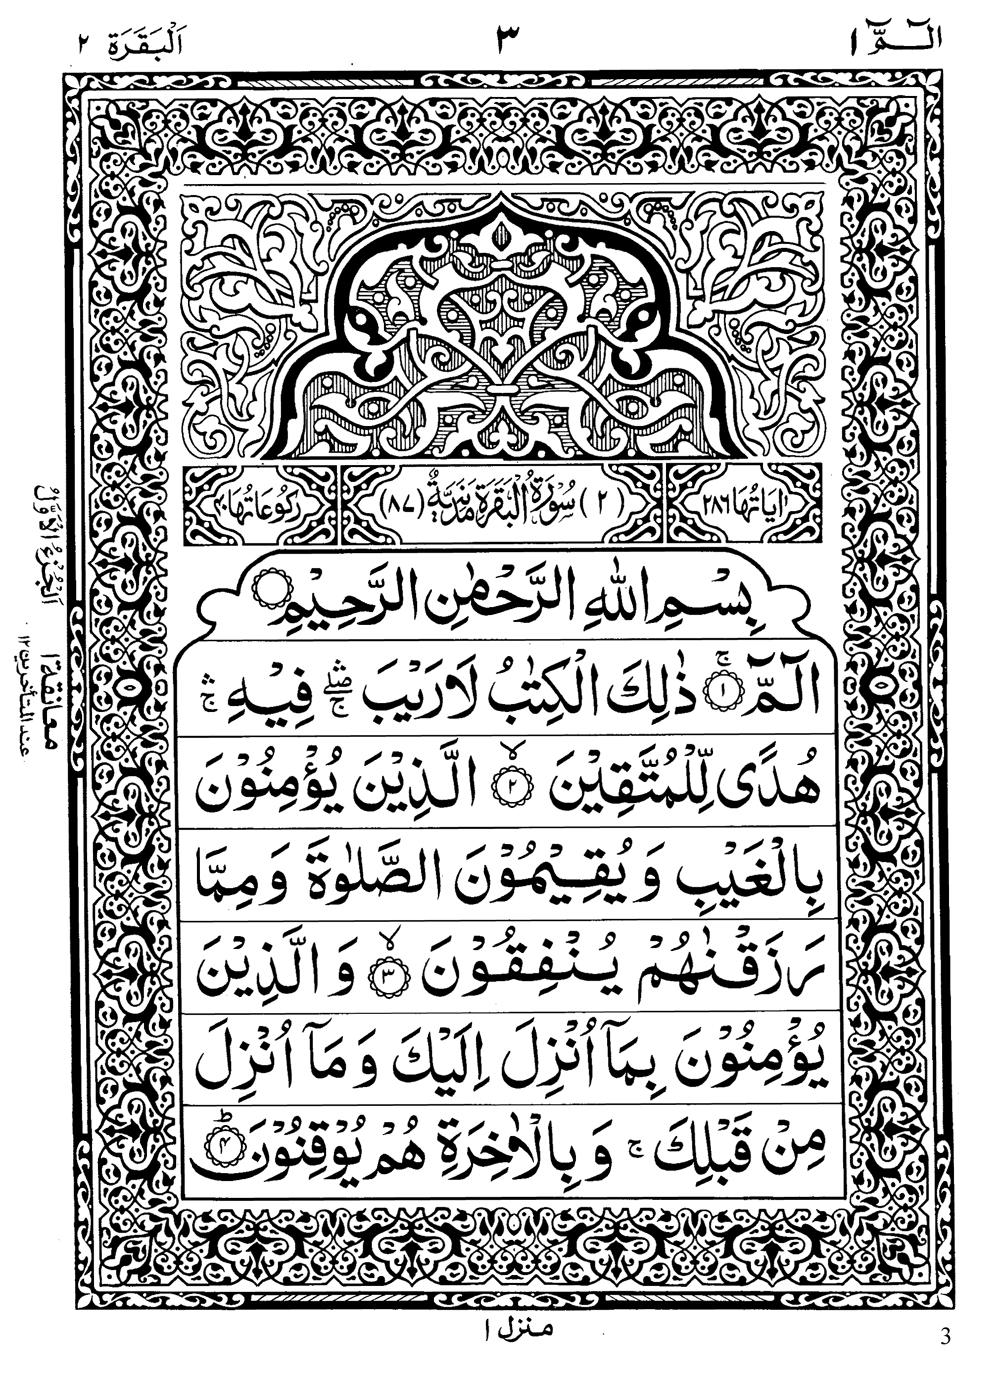 الٓـمّٓ ١
٣
اَلْبَقَرَة ٢
اٰيَاتُهَا ٢٨٦
(٢) سُوْرَةُ الْبَقَرَةِ مَدَنِيَّةٌ (٨٧)
رُكُوْعَاتُهَا ٤٠
بِسْمِ اللّٰهِ الرَّحْمٰنِ الرَّحِيْمِ
الٓـمّٓ ۚ ﴿١﴾ ذٰلِكَ الْكِتٰبُ لَا رَيْبَ ۛۖۚ فِيْهِ ۛۚ
هُدًى لِّلْمُتَّقِيْنَ ۙ ﴿٢﴾ الَّذِيْنَ يُؤْمِنُوْنَ
بِالْغَيْبِ وَيُقِيْمُوْنَ الصَّلٰوةَ وَمِمَّا
رَزَقْنٰهُمْ يُنْفِقُوْنَ ۙ ﴿٣﴾ وَالَّذِيْنَ
يُؤْمِنُوْنَ بِمَآ اُنْزِلَ اِلَيْكَ وَمَآ اُنْزِلَ
مِنْ قَبْلِكَ ۚ وَبِالْاٰخِرَةِ هُمْ يُوْقِنُوْنَ ؕ ﴿۴﴾
اَلْجُزْءُ الْاَوَّلُ
معانقة ١
عند المتأخرين ١٢
منزل ١
3